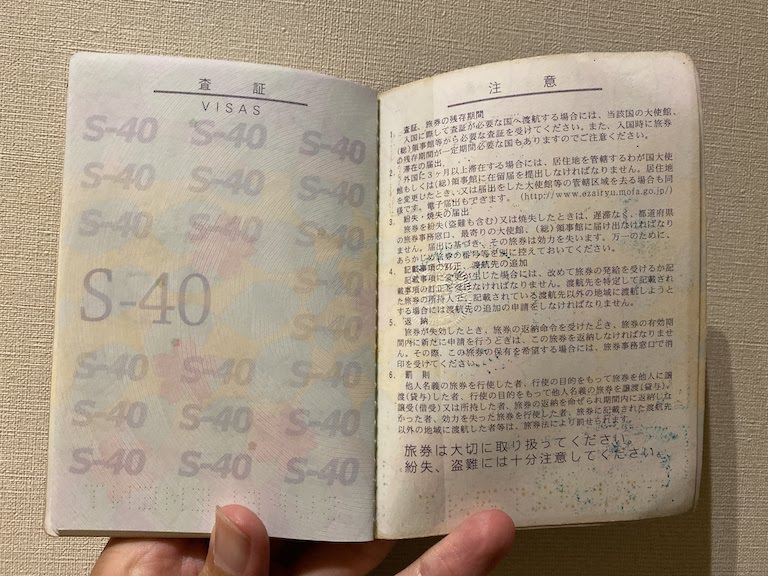 査 証
VISAS
S-40 S-40 S-40
S-40 S-40 S-40
S-40 S-40 S-40
S-40
S-40
S-40
S-40 S-40 S-40
S-40 S-40 S-40
S-40 S-40 S-40
注 意
1. 査証、旅券の残存期間
入国に際して査証が必要な国へ渡航する場合には、当該国の大使館、
(総)領事館等から必要な査証を受けてください。また、入国時に旅券
の残存期間が一定期間必要な国もありますのでご注意ください。
2. 滞在の届出
外国に3ヶ月以上滞在する場合には、居住地を管轄するわが国大使
館もしくは(総)領事館に在留届を提出しなければなりません。居住地
を変更したとき、又は届出をした大使館等の管轄区域を去る場合も同
様です。電子届出もできます。(http://www.ezairyu.mofa.go.jp/)
3. 紛失・焼失の届出
旅券を紛失(盗難も含む)又は焼失したときは、遅滞なく、都道府県
の旅券事務窓口、最寄りの大使館、(総)領事館に届け出なければなり
ません。届出に基づき、その旅券は効力を失います。万一のために、
あらかじめ旅券の番号等を別に控えておいてください。
4. 記載事項の訂正、渡航先の追加
記載事項に変更が生じた場合には、改めて旅券の発給を受けるか記
載事項の訂正を受けなければなりません。渡航先を特定して記載され
た旅券の所持人で、記載されている渡航先以外の地域に渡航しようと
する場合には渡航先の追加の申請をしなければなりません。
5. 返 納
旅券が失効したとき、旅券の返納命令を受けたとき、旅券の有効期
間内に新たに申請を行うときは、この旅券を返納しなければなりませ
ん。その際、この旅券の保有を希望する場合には、旅券事務窓口で消
印を受けてください。
6. 罰 則
他人名義の旅券を行使した者、行使の目的をもって旅券を他人に譲
渡(貸与)した者、行使の目的をもって他人名義の旅券を
譲受(借受)又は所持した者、旅券の返納を命ぜられ期間内に返納しな
かった者、効力を失った旅券を行使した者、旅券に記載された渡航先
以外の地域に渡航した者等は、旅券法により罰せられます。
旅券は大切に取り扱ってください。
紛失、盗難には十分注意してください。